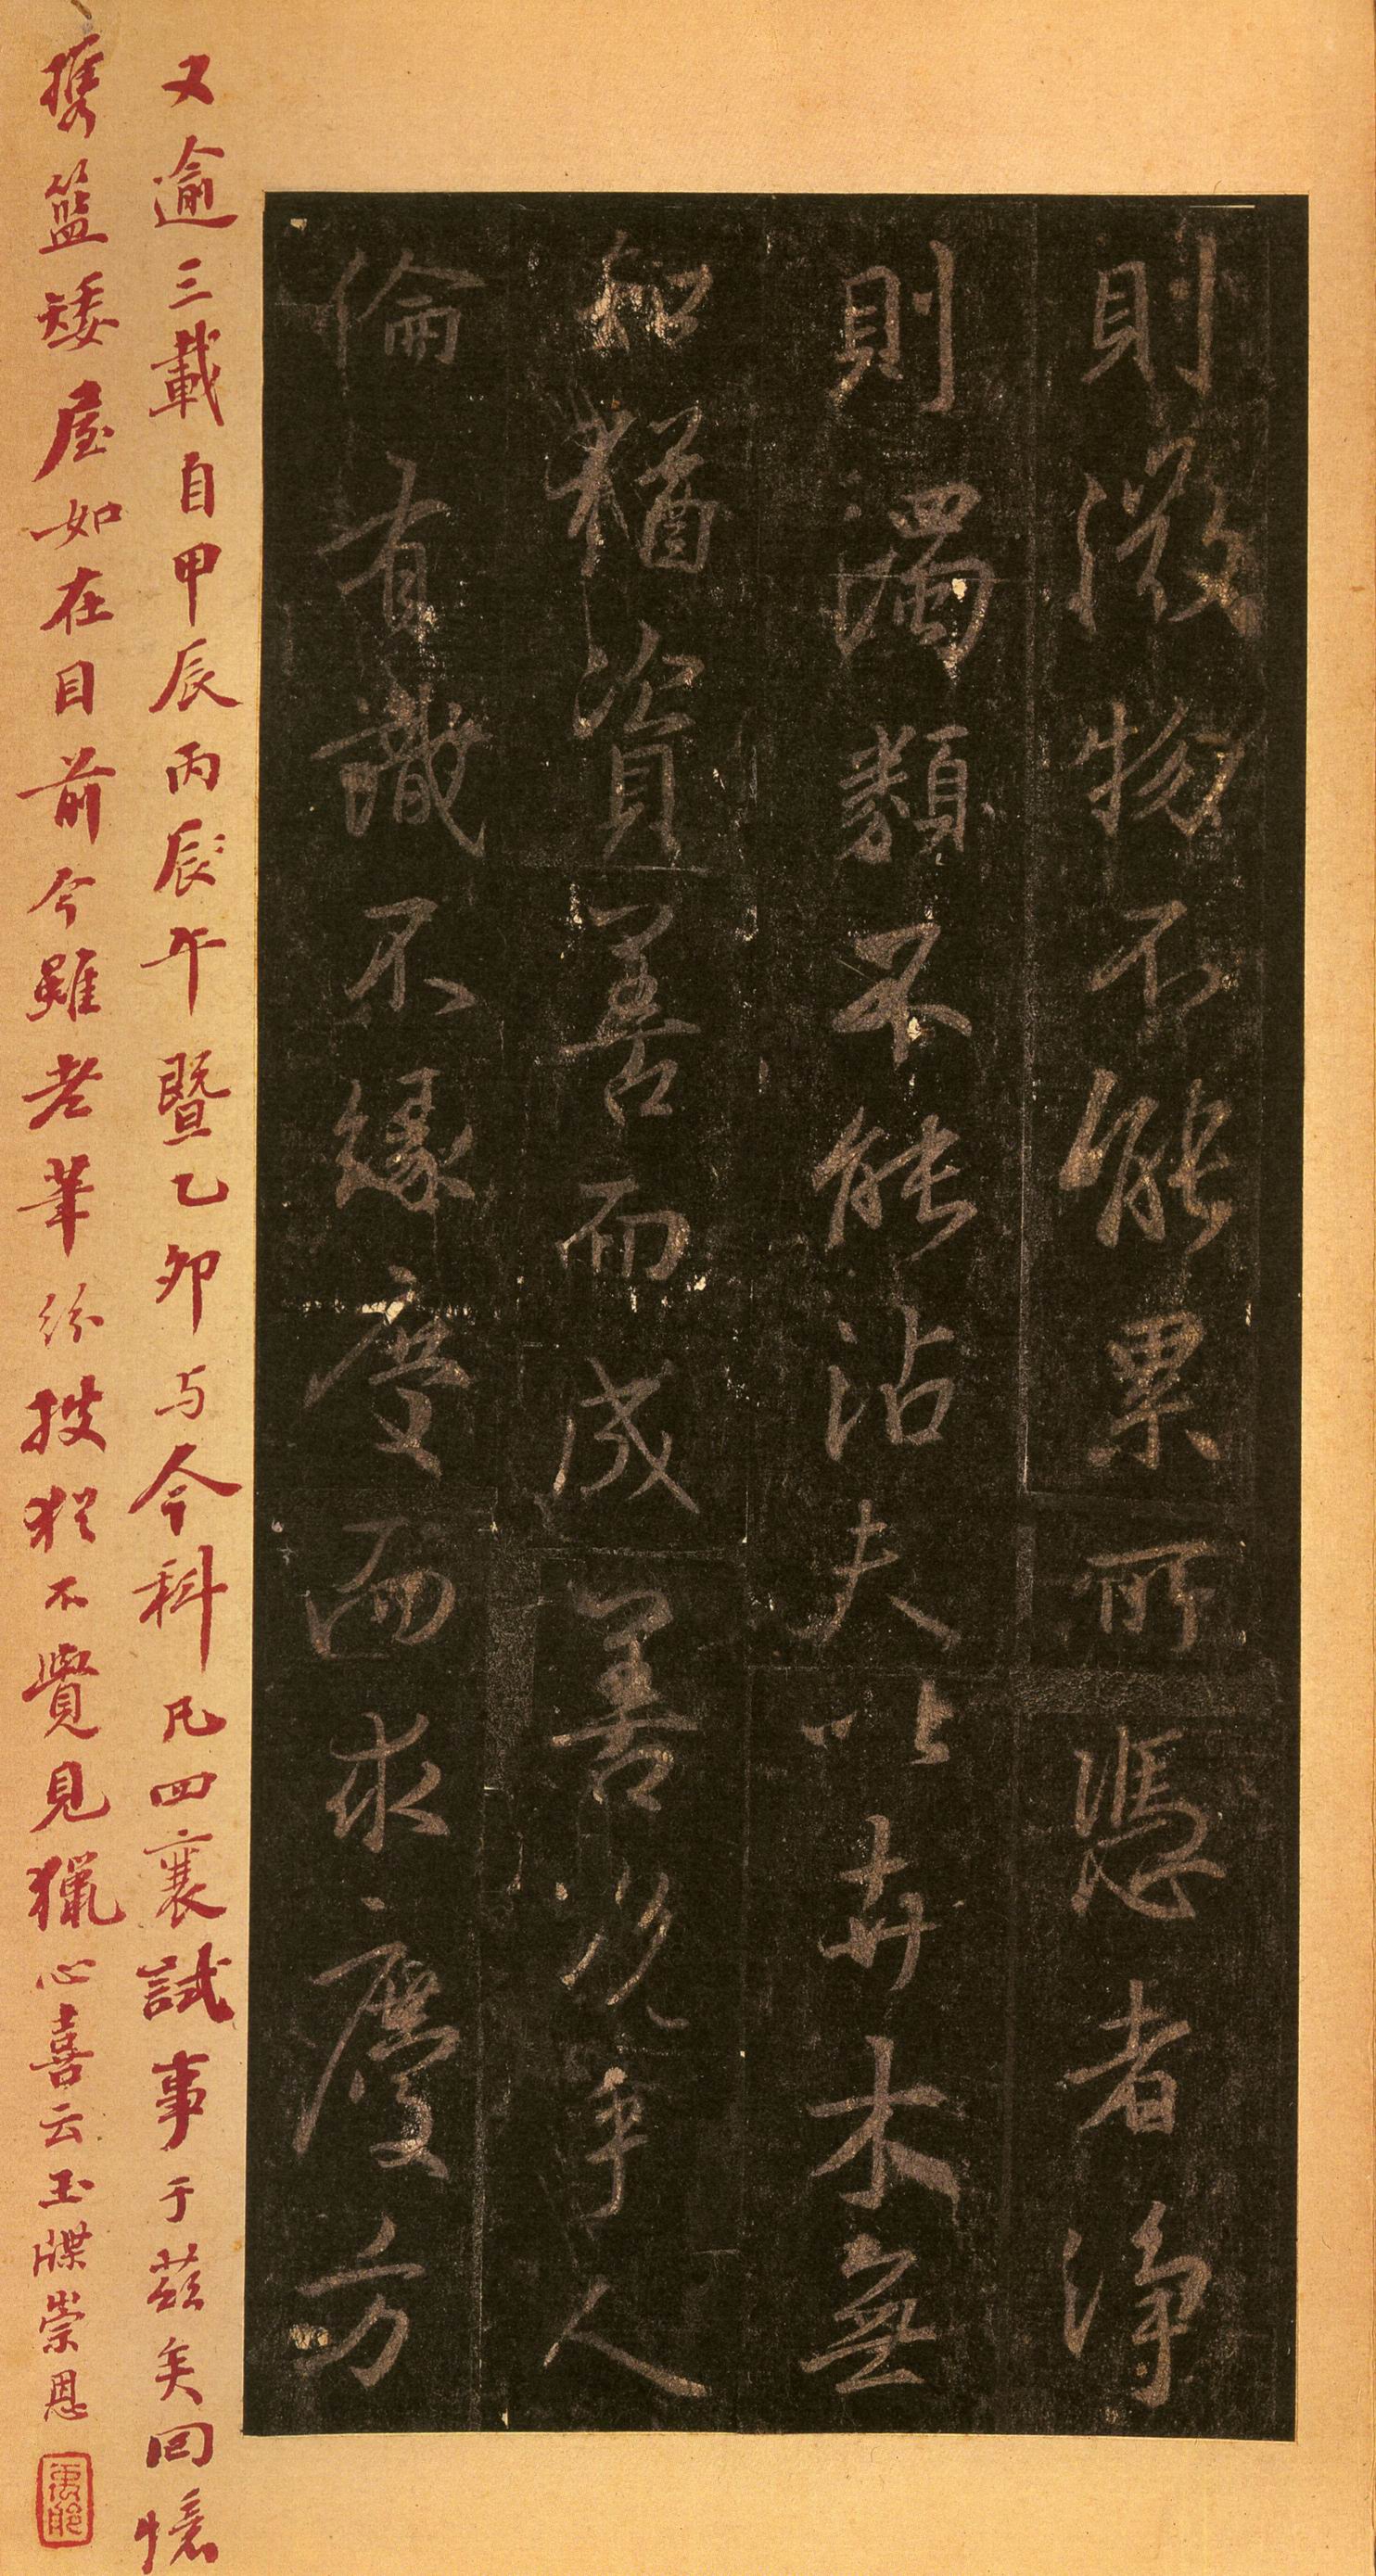 則微物不能累所憑者浄
則濁類不能沾夫以卉木無
知猶資善而成善況乎人
倫有識不緣慶而求慶方
又逾三載自甲辰丙辰午暨乙卯与今科凡四襄試事于茲矣回憶
携籃矮屋如在目前今雖老筆紛披猶不覺見獵心喜云玉牒崇恩
禹舲